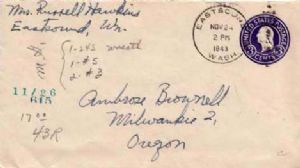 Mrs. Russell Hawkins
Eastsound, Wn.
EASTSOUND
NOV 24
2 PM
1943
WASH.
UNITED STATES POSTAGE
CENTS
1-243 wreath
1-#5
2-#3
11/26
17.00
43R
Ambrose Brownell
Milwaukie 2,
Oregon